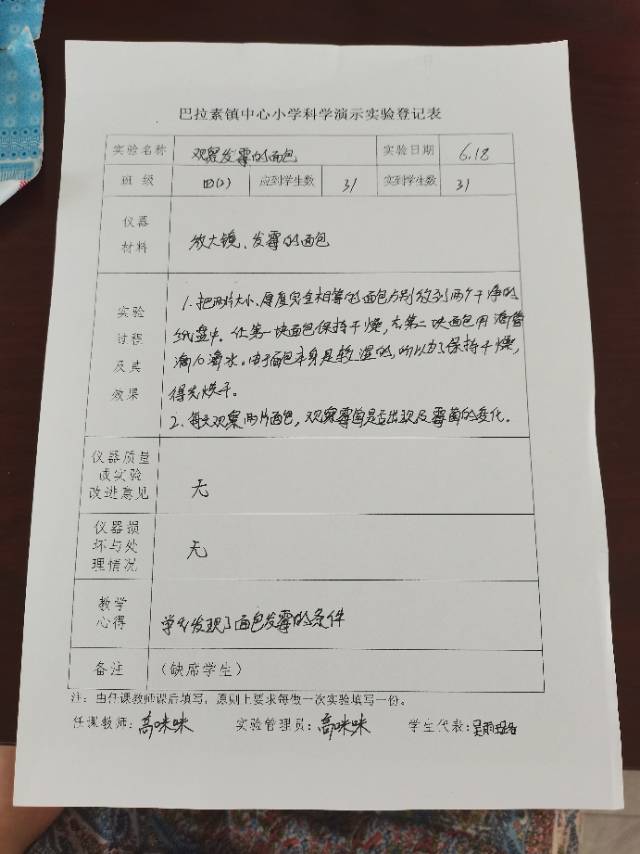 巴拉素镇中心小学科学演示实验登记表
实验名称 观察发霉的面包 实验日期 6.18
班 级 四(2) 应到学生数 31 实到学生数 31
仪器
材料
放大镜、发霉的面包
实验
过程
及其
效果
1. 把两片大小、厚度完全相等的面包分别放到两个干净的
纸盘中。让第一块面包保持干燥,在第二块面包用滴管
滴10滴水。由于面包本身是较湿的,所以为了保持干燥,
得先烘干。
2. 每天观察两片面包,观察霉菌是否出现及霉菌的变化。
仪器质量
或实验
改进意见
无
仪器损
坏与处
理情况
无
教学
心得
学生发现了面包发霉的条件
备注 (缺席学生)
注:由任课教师课后填写,原则上要求每做一次实验填写一份。
任课教师:高咪咪 实验管理员:高咪咪 学生代表: